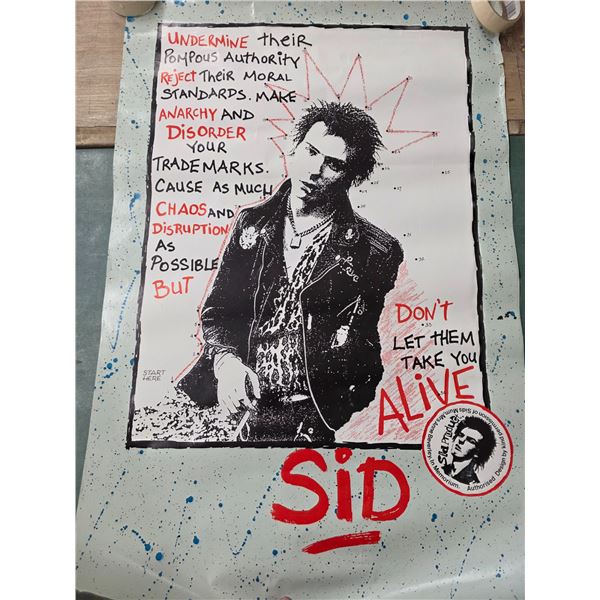 UNDERMINE their
POMPOUS AUTHORITY
REJECT THEIR MORAL
STANDARDS. MAKE
ANARCHY AND
DISORDER
YOUR
TRADEMARKS.
CAUSE AS MUCH
CHAOS AND
DISRUPTION
AS
POSSIBLE
BUT
DON'T
LET THEM
TAKE YOU
ALIVE
START
HERE
SiD
Authorised Design by kind permission of Sids Mum, Mrs Anne Beverley. In Memorium.